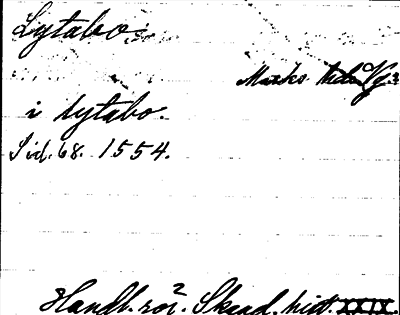 Lytabo:
Marks hd. Vg.
i Lytabo.
Sid. 68. 1554.
Handl. rör. Skand. hist. XXIX.